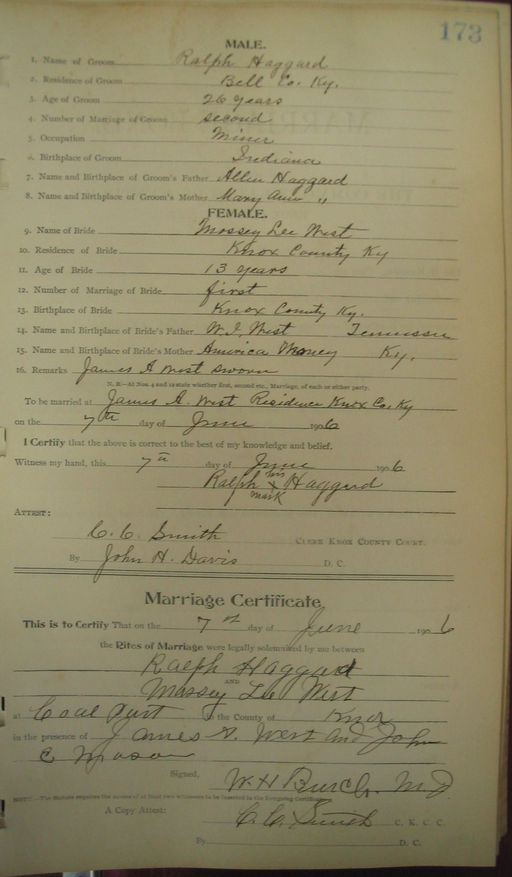 173
MALE.
1. Name of Groom Ralph Haggard
2. Residence of Groom Bell Co. Ky.
3. Age of Groom 26 years
4. Number of Marriage of Groom second
5. Occupation Miner
6. Birthplace of Groom Indiana
7. Name and Birthplace of Groom's Father Allen Haggard
8. Name and Birthplace of Groom's Mother Mary Ann "
FEMALE.
9. Name of Bride Mossey Lee West
10. Residence of Bride Knox County Ky
11. Age of Bride 13 years
12. Number of Marriage of Bride first
13. Birthplace of Bride Knox County Ky.
14. Name and Birthplace of Bride's Father W. J. West Tennessee
15. Name and Birthplace of Bride's Mother America Ky.
16. Remarks James A West sworn
N. B.—At Nos. 4 and 12 state whether first, second etc., Marriage, of each or either party.
To be married at James A. West Residence Knox Co. Ky
on the 7th day of June 1906
I Certify that the above is correct to the best of my knowledge and belief.
Witness my hand, this 7th day of June 1906
Ralph his x mark Haggard
ATTEST:
C. C. Smith CLERK KNOX COUNTY COURT.
By John H. Davis D. C.
Marriage Certificate
This is to Certify That on the 7th day of June 1906
the Rites of Marriage were legally solemnized by me between
Ralph Haggard
AND
Mossey Lee West
at Coal Port in the County of Knox
in the presence of James A. West and John
C Mason
Signed, W. H. Burch. M. G
NOTE.—The Statute requires the names of at least two witnesses to be inserted in the foregoing Certificate.
A Copy Attest: C. C. Smith C. K. C. C.
By D. C.